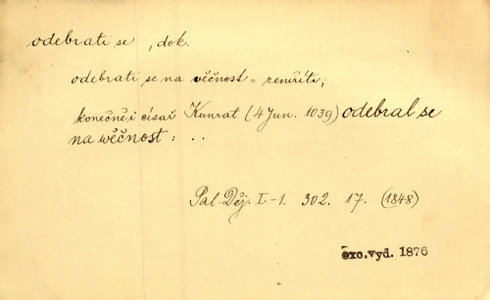 odebrati se , dok.
odebrati se na věčnost = zemříti;
konečně i císař Kunrat (4 Jun. 1039) odebral se
na wěčnost: . .
Pal. Děj. I.-1. 302. 17. (1848)
exc. vyd. 1876